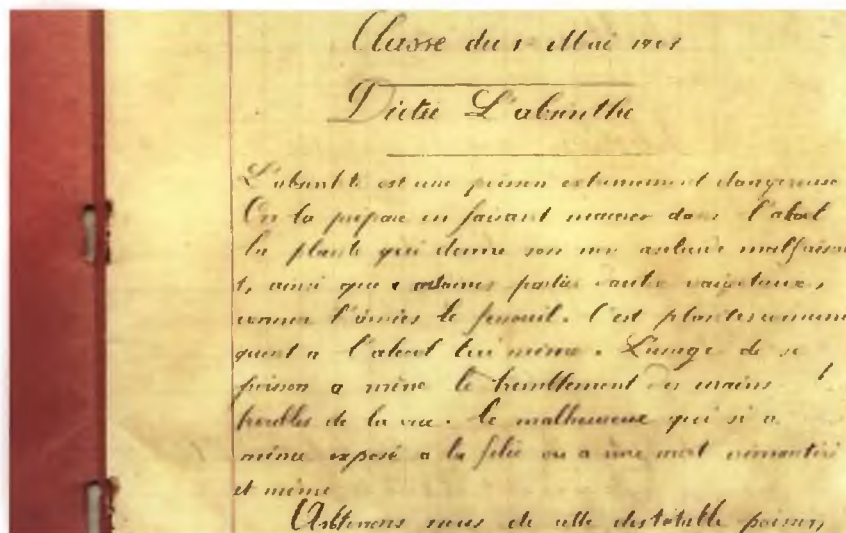 Classe du 1er Mai
Dictée L'absinthe
L'absinthe est une poison extrèmement dangereuse
On la prépare en faisant macérer dans l'alcol
la plante qui donne son malfaisan
t, ainsi que certaines parties d'autre
comme l'ânies le fenouil. C'est plantes comuni
quent a l'alcool lui même. L'usage de se
poison a mène le tremblement des mains
troubles de la vue. Le malheureux qui si a
même exposé a la folie ou a une mort
et même
Abstenons nous de cette poison,